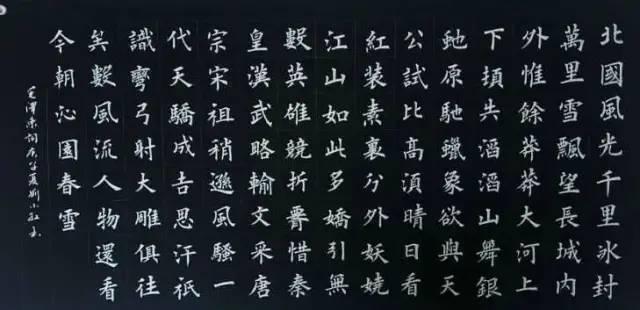 北國風光千里冰封
萬里雪飄望長城內
外惟餘莽莽大河上
下頓失滔滔山舞銀
虵原馳蠟象欲與天
公試比高須晴日看
紅裝素裹分外妖嬈
江山如此多嬌引無
數英雄競折腰惜秦
皇漢武略輸文采唐
宗宋祖稍遜風騷一
代天驕成吉思汗祇
識彎弓射大雕俱往
矣數風流人物還看
今朝沁園春雪
毛澤東詞庚子夏